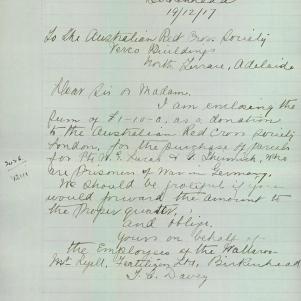 Birkenhead
19/12/17
To the Australian Red Cross Society
Verco Buildings
North Terrace, Adelaide
Dear Sir or Madam.
I am enclosing the
sum of £1-10-0, as a donation
to the Australian Red Cross Society
London, for the purchase of parcels
for Pte W. G. Lucas & who
are Prisoners of War in Germany.
We should be grateful if you
would forward the amount to
the Proper quarter,
And oblige.
Yours on behalf of
the Employees of the Wallaroo
Mt Lyell, Fertilizers Ltd, Birkenhead
Davey